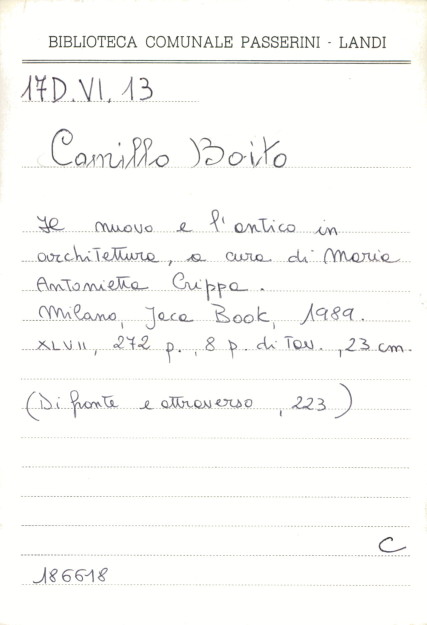 BIBLIOTECA COMUNALE PASSERINI - LANDI
17D.VI.13
Camillo Boito
Il nuovo e l'antico in
architettura, a cura di Maria
Antonietta Crippa.
Milano, Jaca Book, 1989.
XLVII, 272 p., 8 p. di Tav., 23 cm.
(Di fronte e attraverso, 223)
C
186618